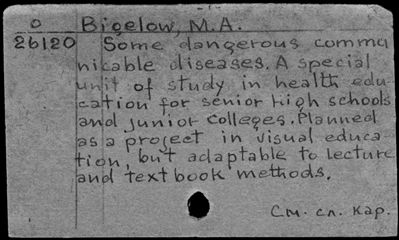 O Bigelow, M.A.
26120 Some dangerous commu
nicable diseases. A special
unit of study in health edu-
cation for senior high schools
and junior colleges. Planned
as a project in visual educa-
tion, but adaptable to lecture
and textbook methods.
См. сл. кар.